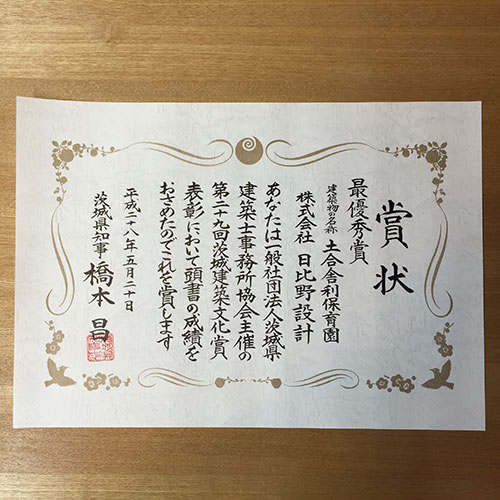 賞状
最優秀賞
建築物の名称 土合舎利保育園
株式会社 日比野設計
あなたは一般社団法人茨城県
建築士事務所協会主催の
第二十九回茨城建築文化賞
表彰において頭書の成績を
おさめたのでこれを賞します
平成二十八年五月二十日
茨城県知事 橋本昌